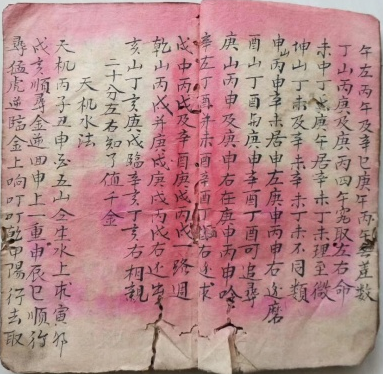 午左丁午及辛巳庚午丙午
丁山丙庚及庚丙四午宛取左右命
未中丁未庚午居辛未丁未理至微
坤山丁未及辛未辛未丁未不同類
申山丙申辛未居申左庚申丙申右逐磨
酉山丁酉与庚申辛酉丁酉可追尋
庚山丙申及庚申右在庚申丙申吟
辛左丁酉并未酉辛酉丁酉右逐求
戌中丙戌及辛酉庚戌丙戌一路週
乾山丙戌并庚戌庚戌丙戌右还
亥山丁亥庚戌臨辛亥丁亥右相親
二十分左右知了值千金
天机水法
天机丙子丑申亥五山全生水上求寅卯
戌亥順尋金逆回申上一重申辰巳順行
尋猛虎逆臨金上响叮叮乾甲陽行去取